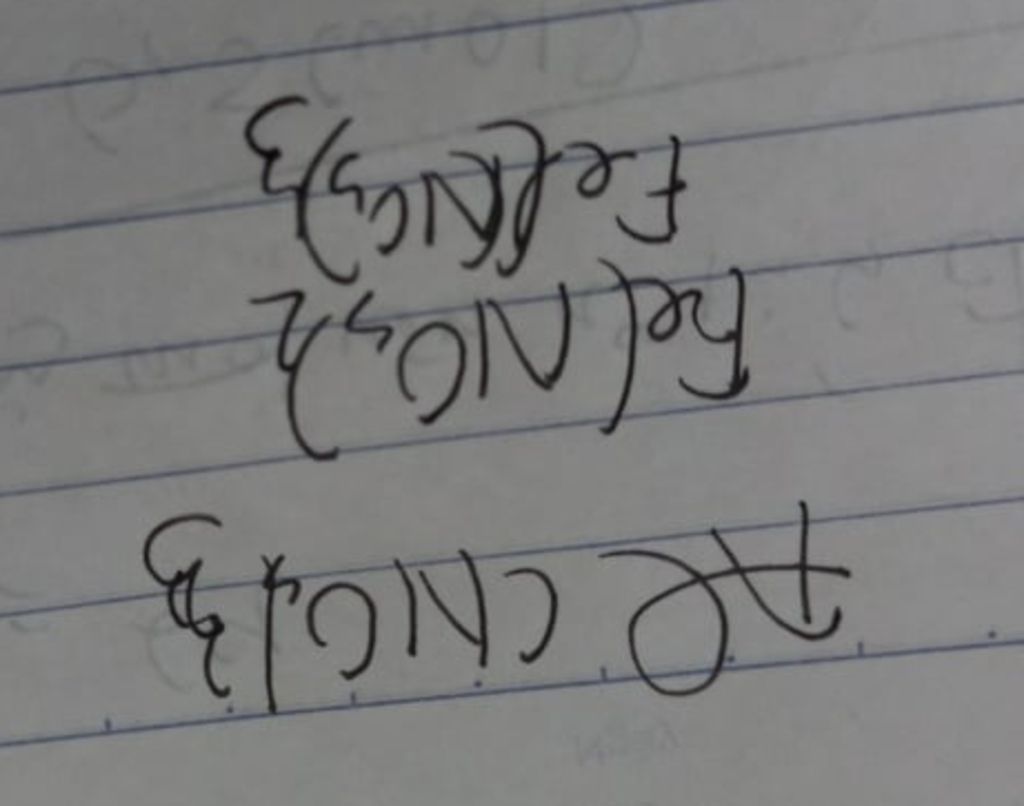 Al(NO3)3
Fe(NO3)2
Fe(NO3)3